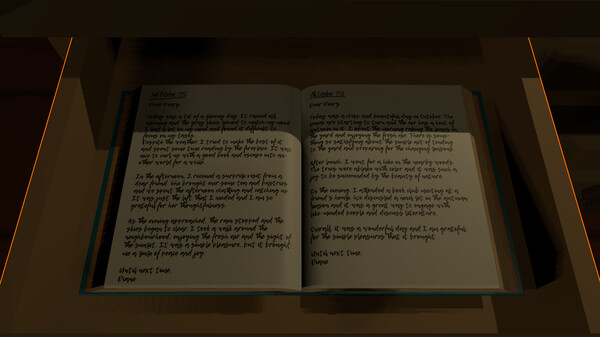 Dear Diary,
Today was a bit of a gloomy day. It rained all
morning and the gray skies seemed to match my mood.
I had a lot on my mind and found it difficult to
focus on my tasks.
Despite the weather, I tried to make the best of it
and spent some time reading by the fireplace. It was
nice to curl up with a good book and escape into an-
other world for a while.
In the afternoon, I received a surprise visit from a
dear friend. She brought over some tea and pastries,
and we spent the afternoon chatting and catching up.
It was just the lift that I needed and I am so
grateful for her thoughtfulness.
As the evening approached, the rain stopped and the
skies began to clear. I took a walk around the
neighbourhood, enjoying the fresh air and the sight of
the sunset. It was a simple pleasure, but it brought
me a sense of peace and joy.
Until next time,
Diane
Dear Diary,
Today was a crisp and beautiful day in October. The
leaves are starting to turn and the air has a hint of
autumn in it. I spent the morning raking the leaves in
the yard and enjoying the fresh air. There is some-
thing so satisfying about the simple act of tending
to the yard and preparing for the changing seasons.
After lunch, I went for a hike in the nearby woods.
The trees were ablaze with color and it was such a
joy to be surrounded by the beauty of nature.
In the evening, I attended a book club meeting at a
friend's house. We discussed a novel set in the autumn
season and it was a great way to engage with
like-minded people and discuss literature.
Overall, it was a wonderful day and I am grateful
for the simple pleasures that it brought.
Until next time,
Diane